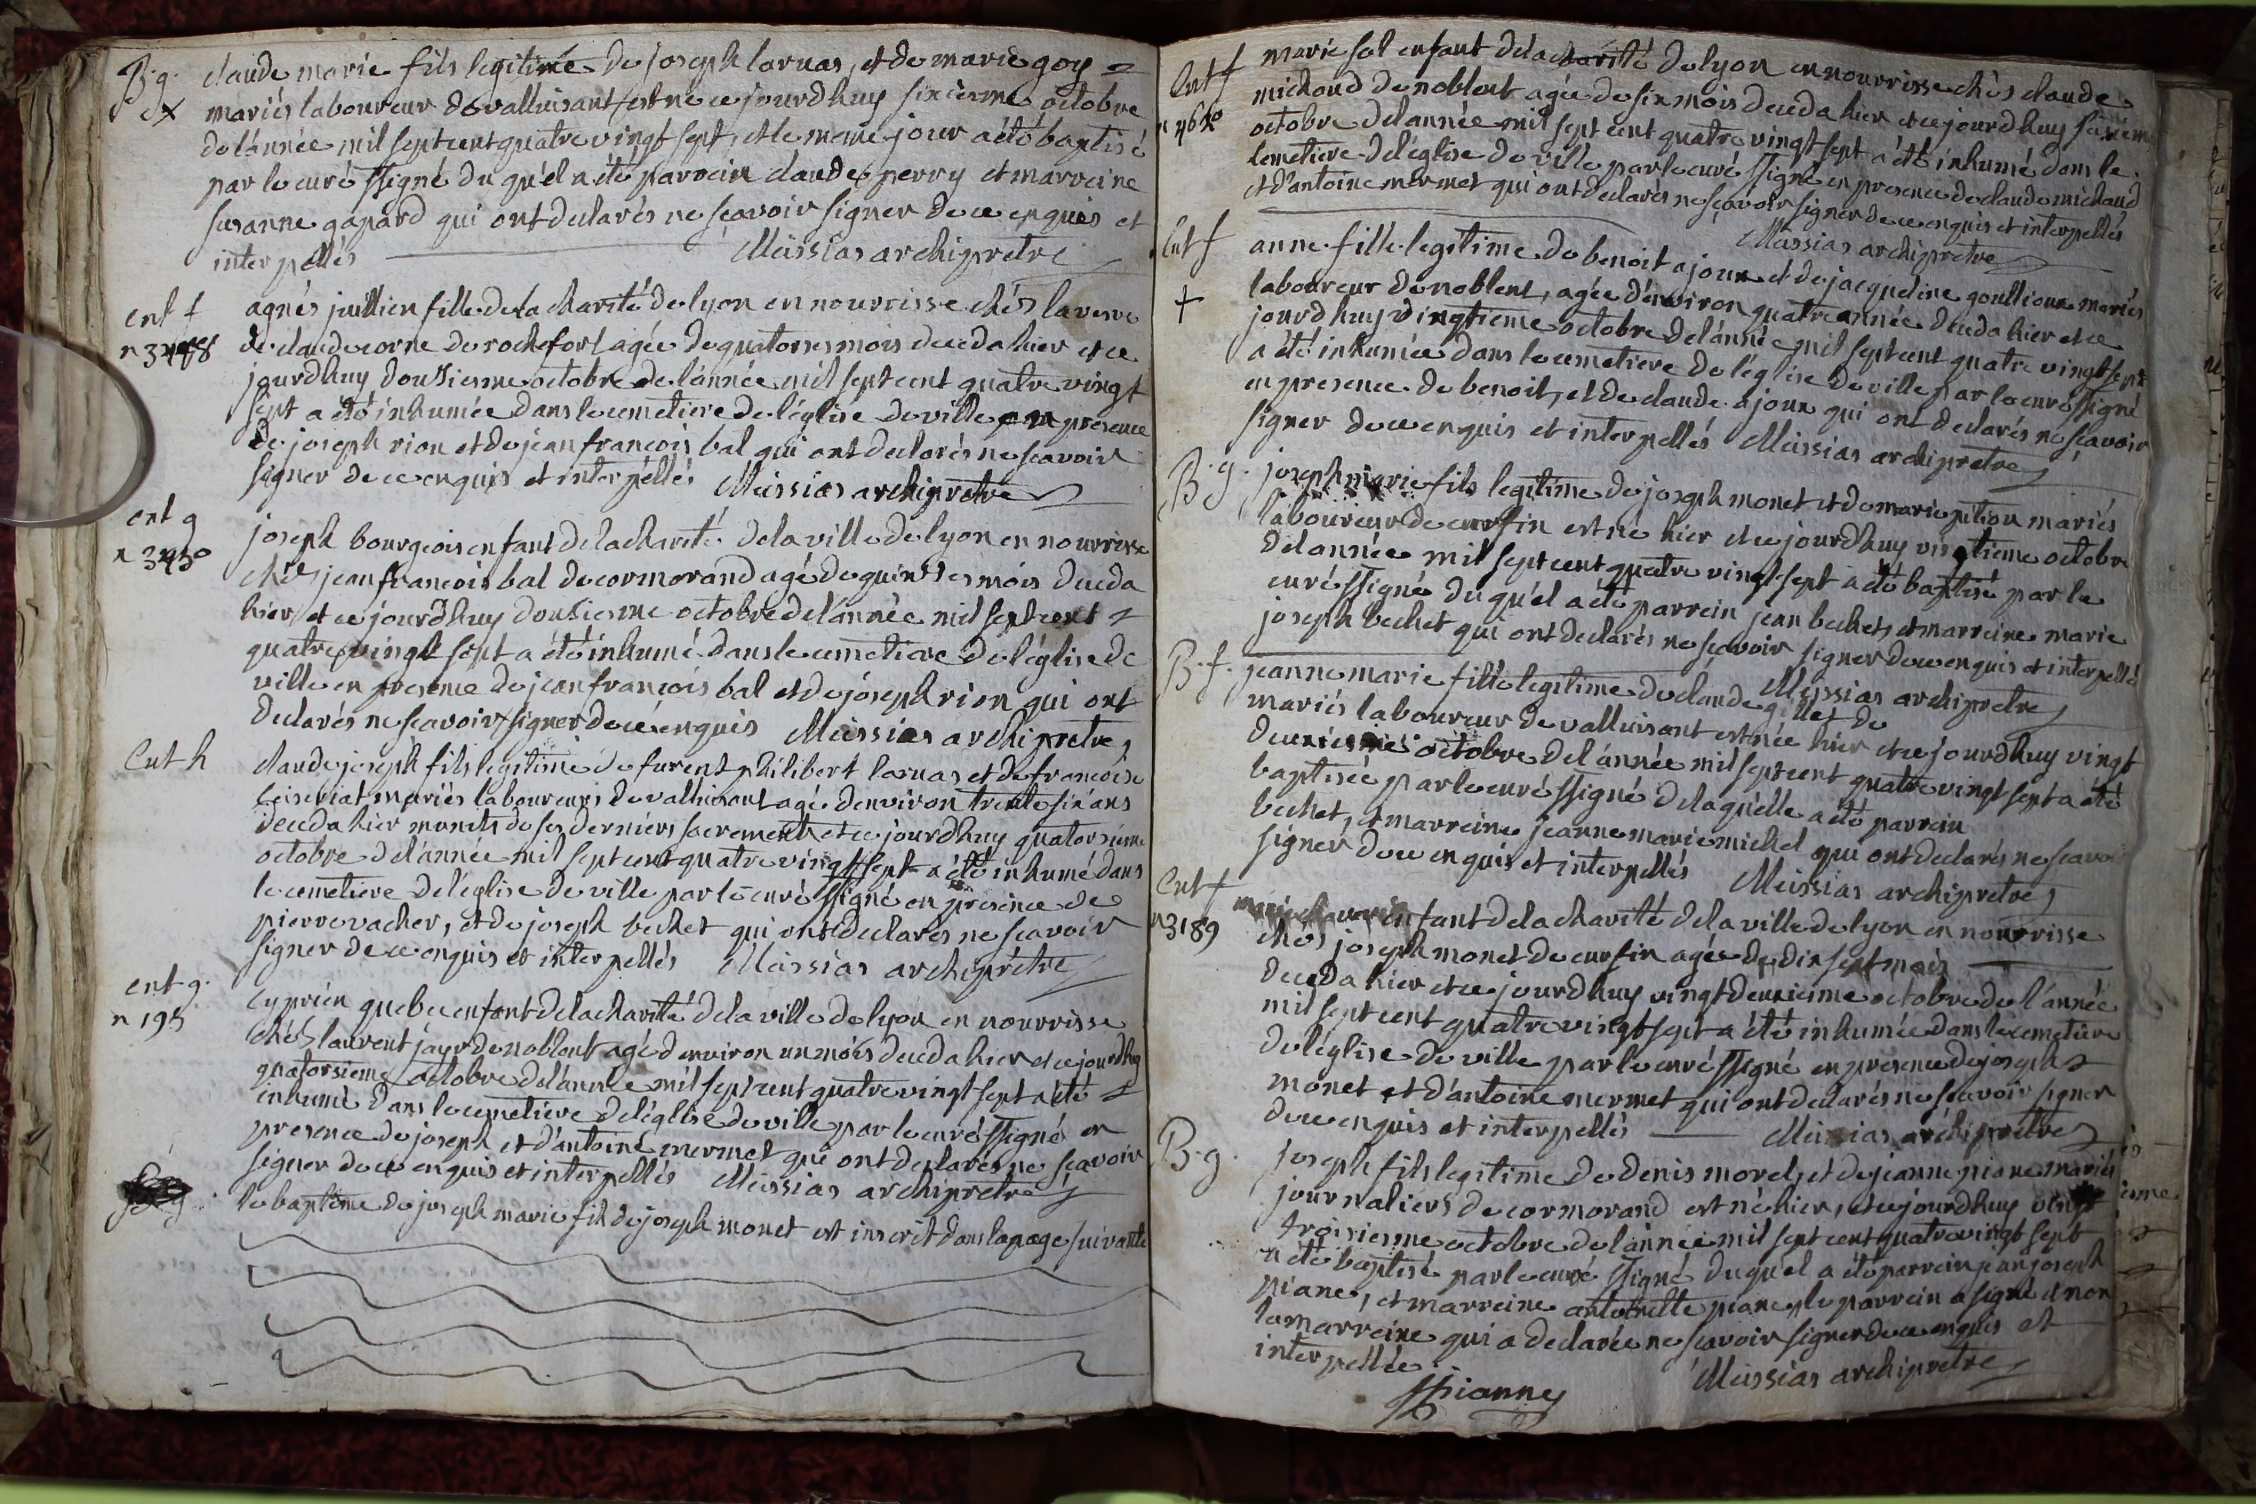 B. g. claude marie fils legitime de joseph laruas, et de marie goy
mariés laboureur de valluisant est né ce jourdhuy sixieme octobre
de lánnée mil sept cent quatre vingt sept, et le meme jour a été baptisé
par le curé ssigné du quél a été parrain claude perry et marraine
susanne gapard qui ont declarés ne sçavoir signer de ce enquis et
interpellés Messias archipretre
ent f agnés juillien fille de la charité de lyon en nourrisse chés la veuve
de claude corne de rochefort agée de quatorses mois deceda hier et ce
jourdhuy dousiesme octobre de lánnée mil sept cent quatre vingt
sept a été inhumée dans le cemetiere de léglise de ville en presence
de joseph rion et de jean francois bal qui ont declarés ne scavoir
signer de ce enquis et interpéllés Messias archipretre
ent g
n 3430 joseph bourgeois enfant de la charité de la ville de lyon en nourrisse
chés jean francois bal de cormorand agé de quinses mois deceda
hier, et ce jourdhuy dousiesme octobre de lánnée mil sept cent
quatre vingt sept a été inhumé dans le cemetiere de léglise de
ville en presence de jean francois bal et de joseph rion qui ont
declarés ne scavoir signer de ce énquis Messias archipretre
Ent h claude joseph fils legitime de furent philibert laruas et de francoise
mariés laboureurs de valluisant agé denviron trente six ans
deceda hier munits de ses derniers sacrements et ce jourdhuy quatorsieme
octobre de lánnée mil sept cent quatre vingt sept a été inhumé dans
le cemetiere de léglise de ville par le curé ssigné en presence de
pierre vacher, et de joseph bechet qui ont declarés ne scavoir
signer de ce enquis et interpellés Messias archiprétre
ent g.
n 195 cyprien quebec enfant de la charité de la ville de lyon en nourrisse
chés laurent jayr de noblent agé denviron un mois deceda hier et ce jourdhuy
quatorsieme octobre de lánnée mil sept cent quatre vingt sept a été
inhumé dans le cemetiere de léglise de ville par le curé ssigné en
presence de joseph et d'antoine mermet qui ont declarés ne scavoir
signer de ce enquis et interpellés Messias archipretre
le baptème de joseph marie fils de joseph monet est inscrit dans la page suivante
Ent f marie sol enfant de la charité de lyon en nourrisse chés claude
michaud de noblent agée de six mois deceda hier et ce jourdhuy
octobre de lannée mil sept cent quatre vingt sept a été inhumé dans le
cemetiere de léglise de ville par le curé ssigné en presence de claude michaud
et d'antoine mermet qui ont declarés ne sçavoir signer de ce enquis et interpellés
Messias archipretre
Ent f anne fille legitime de benoit ajoux et de jacqueline goullioux mariés
laboureur de noblent, agée dénviron quatre année deceda hier et ce
jourdhuy vingtieme octobre de lánnée mil sept cent quatre vingt sept
a été inhumée dans le cemetiere de léglise de ville par le curé ssigné
en presence de benoit, et de claude ajoux qui ont declarés ne scavoir
signer de ce enquis et interpellés Messias archipretre
B. g. joseph marie fils legitime de joseph monet et de marie petion mariés
laboureur de curfin est né hier et ce jourdhuy vingtieme octobre
de lannée mil sept cent quatre vingt sept a été baptisé par le
curé ssigné du quél a été parrain jean bechet, et marraine marie
joseph bechet qui ont declarés ne scavoir signer de ce enquis et interpellé
Messias archipretre
B. f. jeanne marie fille legitime de claude gillet de
mariés laboureur de valluisant est née hier et ce jourdhuy vingt
deuxiesme octobre de lánnée mil sept cent quatre vingt sept a été
baptisée par le curé ssigné de la quélle a été parrain
bechet, et marraine jeanne marie michel qui ont declarés ne scavoir
signer de ce enquis et interpellés Messias archipretre
Ent f
n 3189 enfant de la charité de la ville de lyon en nourrisse
chés joseph monet de curfin agée de dix sept mois
deceda hier et ce jourdhuy vingt deuxieme octobre de lánnée
mil sept cent quatre vingt sept a été inhumée dans le cemetiere
de léglise de ville par le curé ssigné en presence de joseph
monet et d'antoine mermet qui ont declarés ne scavoir signer
de ce enquis et interpellés Messias archipretre
B. g. joseph fils legitime de denis morel, et de jeanne piane mariés
journaliers de cormorand est né hier, et ce jourdhuy vingt
troisiesme octobre de lánnée mil sept cent quatre vingt sept
a été baptisé par le curé ssigné du quel a été parrain jean joseph
piane, et marraine antoinette piane, le parrain a signé et non
la marraine qui a declarée ne scavoir signer de ce enquis et
interpellée Messias archipretre
JJpianny